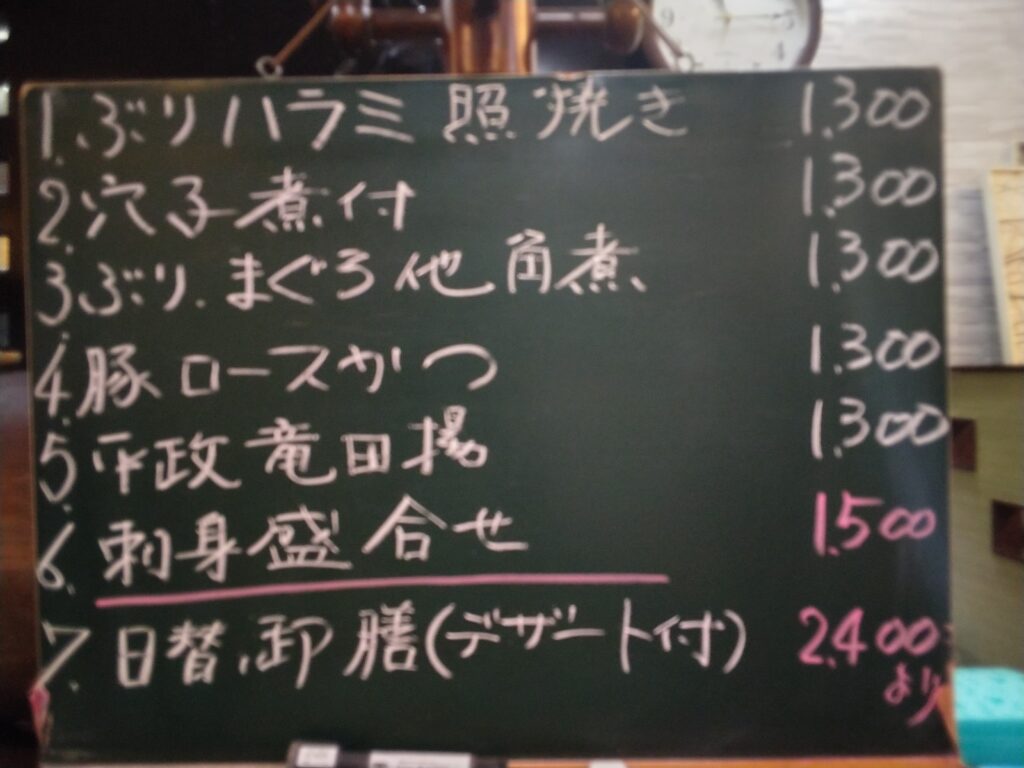 1.ぶりハラミ照焼き 1.300
2.穴子煮付 1.300
3.ぶり.まぐろ他角煮 1.300
4.豚ロースかつ 1.300
5.平政竜田揚 1.300
6.刺身盛合せ 1.500
7.日替.御膳(デザート付) 2.400
より